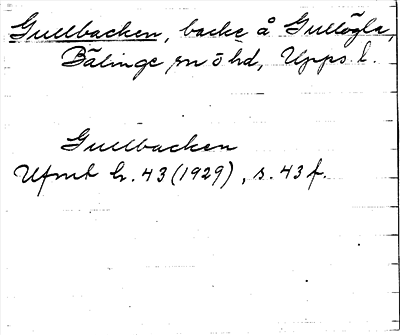 Gullbacken, backe å Gullögla,
Bälinge sn o hd, Upps. l.
Gullbacken
Ufmt h. 43 (1929), s. 43 f.